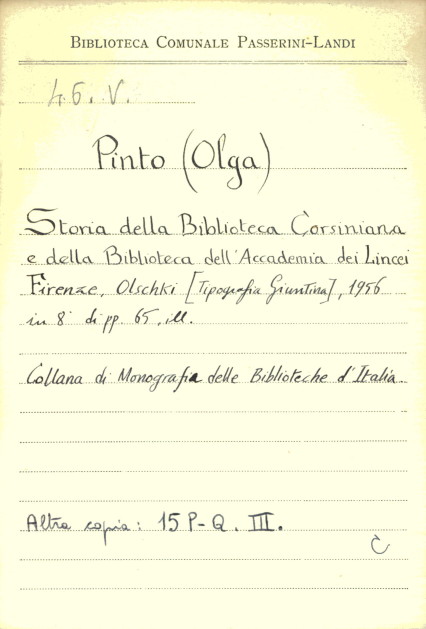 BIBLIOTECA COMUNALE PASSERINI-LANDI
46. V.
Pinto (Olga)
Storia della Biblioteca Corsiniana
e della Biblioteca dell'Accademia dei Lincei
Firenze, Olschki [Tipografia Giuntina], 1956
in 8° di pp. 65, ill.
Collana di Monografia delle Biblioteche d'Italia
Altra copia: 15 P-Q. III.
C